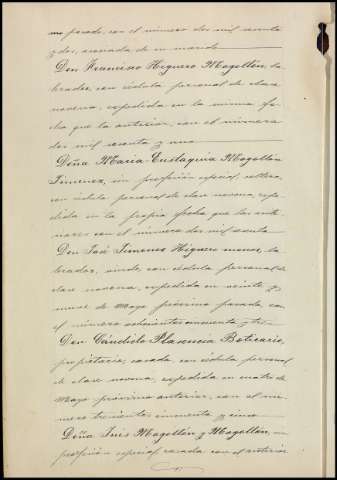 mo pasado, con el número dos mil sesenta
y dos, asociada de su marido
Don Francisco Higuero Mogollón, la-
brador, con cédula personal de clase
novena, expedida en la misma fe-
cha que la anterior, con el número
dos mil sesenta y uno
Doña María Eustaquia Mogollón
Jimenez, sin profesión especial, soltera,
con cédula personal de clase novena, expe-
dida en la propia fecha que las ante-
riores con el número dos mil sesenta
Don José Jimenez Higuero menor, la-
brador, viudo, con cédula personal de
clase novena, expedida en veinte y
nueve de Mayo próximo pasado, con
el número ochocientos cincuenta y tres
Don Cándido Plasencia Boticario,
propietario, casado, con cédula personal
de clase novena, expedida en cuatro de
Mayo próximo anterior, con el nú-
mero trescientos cincuenta y cinco
Doña Inés Mogollón y Mogollón, sin
profesión especial, casada con el anterior